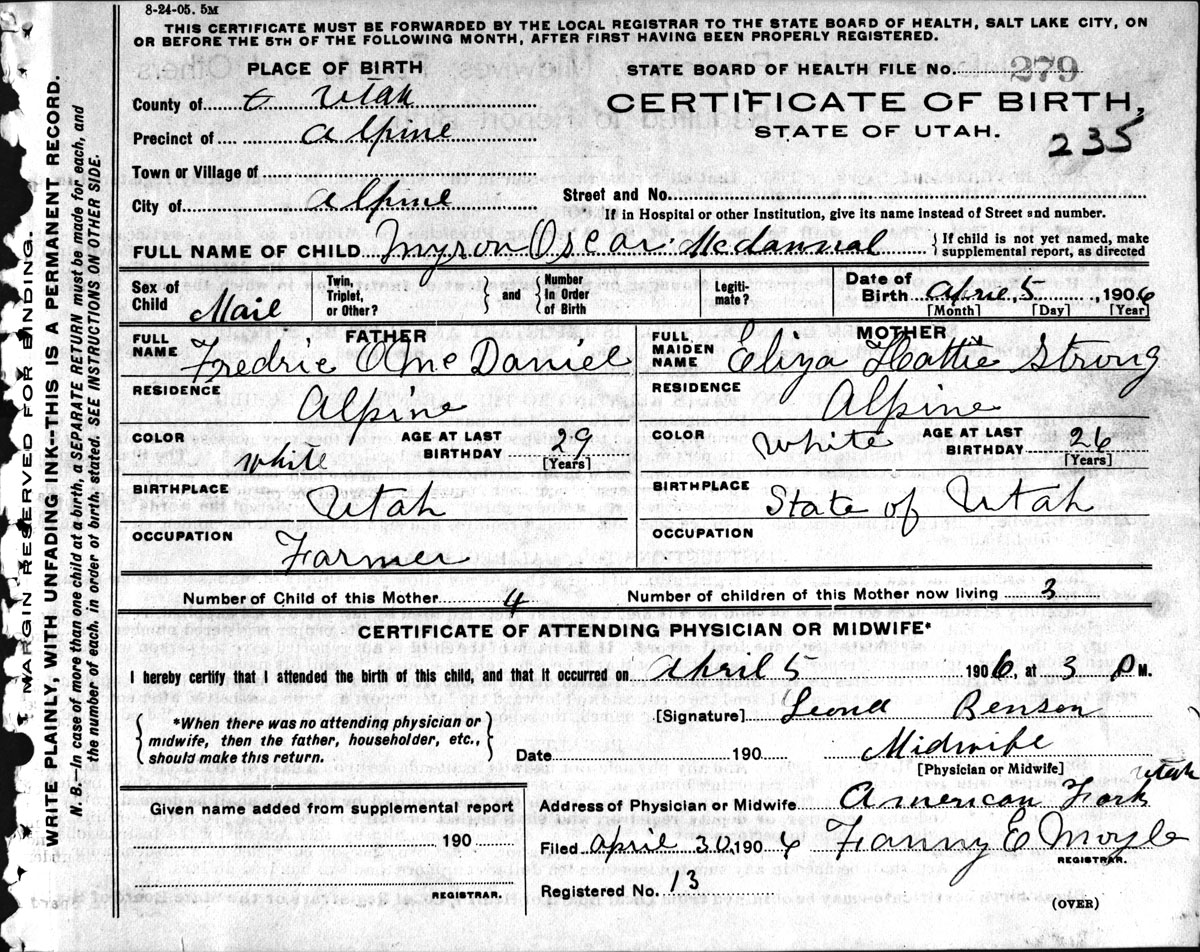 8-24-05. 5M
THIS CERTIFICATE MUST BE FORWARDED BY THE LOCAL REGISTRAR TO THE STATE BOARD OF HEALTH, SALT LAKE CITY, ON
OR BEFORE THE 5TH OF THE FOLLOWING MONTH, AFTER FIRST HAVING BEEN PROPERLY REGISTERED.
MARGIN RESERVED FOR BINDING.
WRITE PLAINLY, WITH UNFADING INK--THIS IS A PERMANENT RECORD.
N. B.—In case of more than one child at a birth, a SEPARATE RETURN must be made for each, and
the number of each, in order of birth, stated. SEE INSTRUCTIONS ON OTHER SIDE.
PLACE OF BIRTH
STATE BOARD OF HEALTH FILE No. 279
County of Utah
CERTIFICATE OF BIRTH,
Precinct of Alpine
STATE OF UTAH.
235
Town or Village of
City of Alpine
Street and No.
If in Hospital or other Institution, give its name instead of Street and number.
FULL NAME OF CHILD Myron Oscar Mcdannal
If child is not yet named, make
supplemental report, as directed
Sex of Child Mail
Twin, Triplet, or Other?
and
Number in Order of Birth
Legiti- mate?
Date of Birth April, 5, 1906
[Month] [Day] [Year]
FATHER
FULL NAME Fredric O Mc Daniel
MOTHER
FULL MAIDEN NAME Eliza Hattie Strong
RESIDENCE Alpine
RESIDENCE Alpine
COLOR White
AGE AT LAST BIRTHDAY 29
[Years]
COLOR White
AGE AT LAST BIRTHDAY 26
[Years]
BIRTHPLACE Utah
BIRTHPLACE State of Utah
OCCUPATION Farmer
OCCUPATION
Number of Child of this Mother 4
Number of children of this Mother now living 3
CERTIFICATE OF ATTENDING PHYSICIAN OR MIDWIFE*
I hereby certify that I attended the birth of this child, and that it occurred on April 5 1906, at 3 P M.
*When there was no attending physician or
midwife, then the father, householder, etc.,
should make this return.
[Signature] Leond Benson
Date 190
Midwife
[Physician or Midwife]
Given name added from supplemental report
190
REGISTRAR.
Address of Physician or Midwife American Fork Utah
Filed April 30, 1906 Fanny E Moyle
REGISTRAR.
Registered No. 13
(OVER)